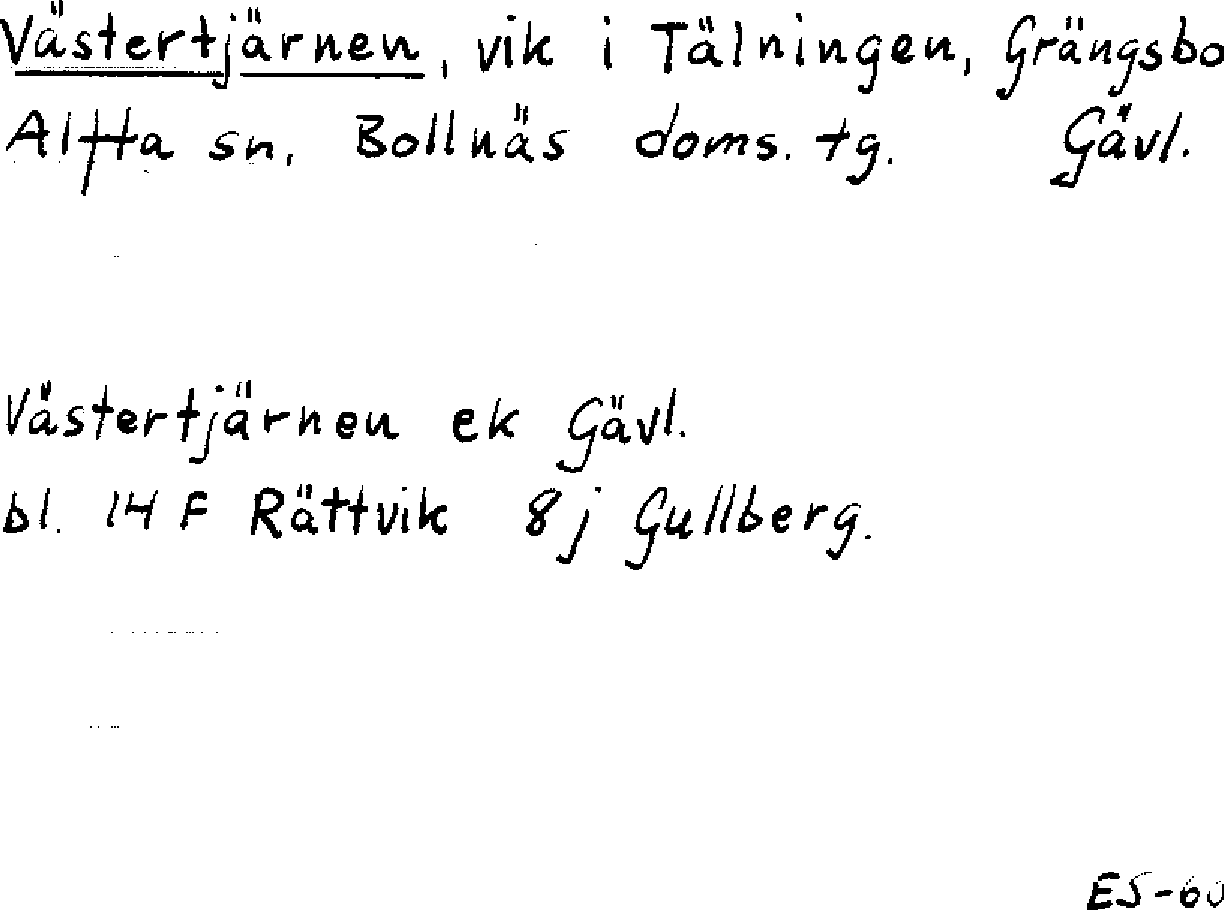 Västertjärnen, vik i Tälningen, Grängsbo
Alfta sn, Bollnäs doms. tg. Gävl.
Västertjärnen ek Gävl.
bl. 14 F Rättvik 8 j Gullberg.
ES-60